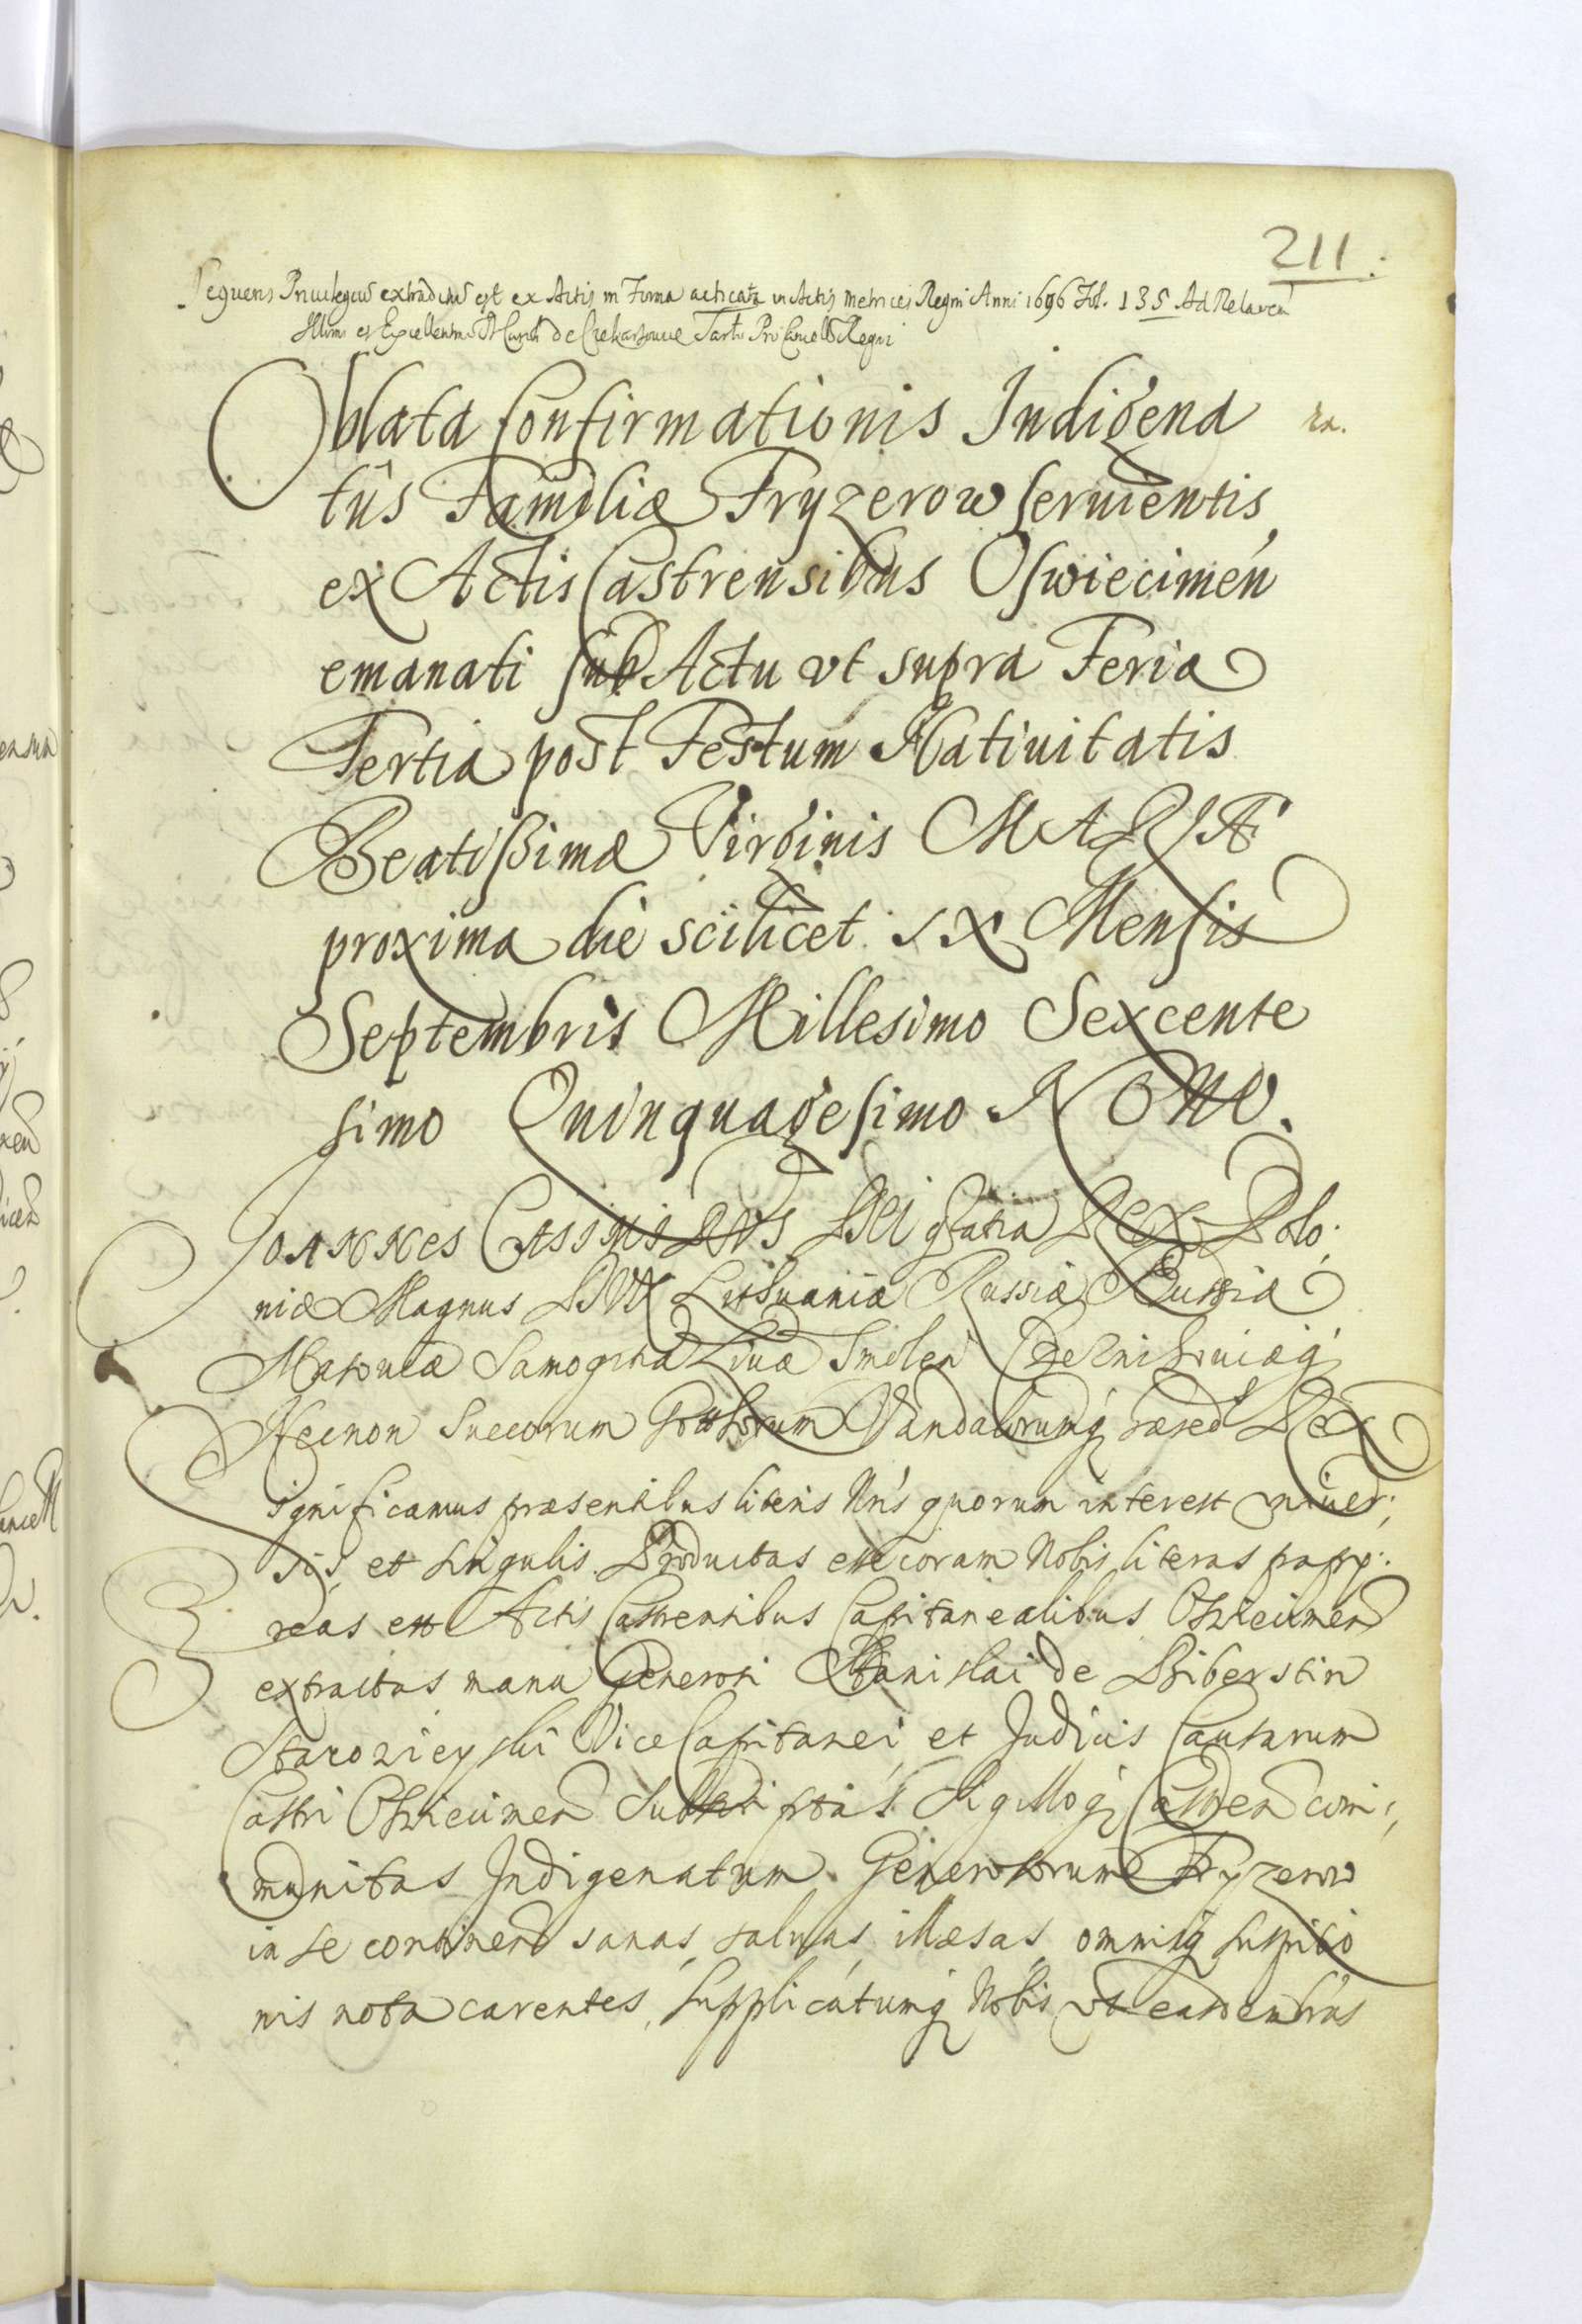 211.
Sequens Priuilegiũ extraditũ est ex Actis in Forma acticata in Actis Metrices Regni Anni 1696 Fol. 135 Ad Relaren
Illmi et Excellentmi de Tarło Pro Cancell Regni
Oblata Confirmationis Indigena
tûs Familiæ Fryzerow seruientis
ex Actis Castrensibus Oswiecimen
emanati sub Actu vt supra Feria
Tertia post Festum Natiuitatis
Beatissimæ Virginis MARIÆ
proxima die scilicet IX Mensis
Septembris Millesimo Sexcente
simo Quinquagesimo NONO.
Joannes Casimirus Dei gratia Rex Polo:
niæ Magnus Dux Lithuaniæ Russiæ Prussiæ
Masouiæ Samogitiæ Liuæ Smolen Czernihouiæq́
Necnon Suecorum Gotthorum Vandalorumq́ hæred Rex
significamus præsentibus literis Nris quorum interest uniuer:
sis et singulis. Productas esse coram Nobis literas papy:
reas ex Actis Castrensibus Capitanealibus Oswiecimen
extractas manu Generosi Stanislai de Biberstin
Starowieyski Vice Capitanei et Judicis Causarum
Castri Oswiecimen Subscriptas Sigilloq́ Castren com:
munitas Indigenatum Generosorum Fryzerow
in se continen sanas saluas illæsas omniq́ suspitio
nis nota carentes, Supplicatumq́ Nobis vt easdem lras